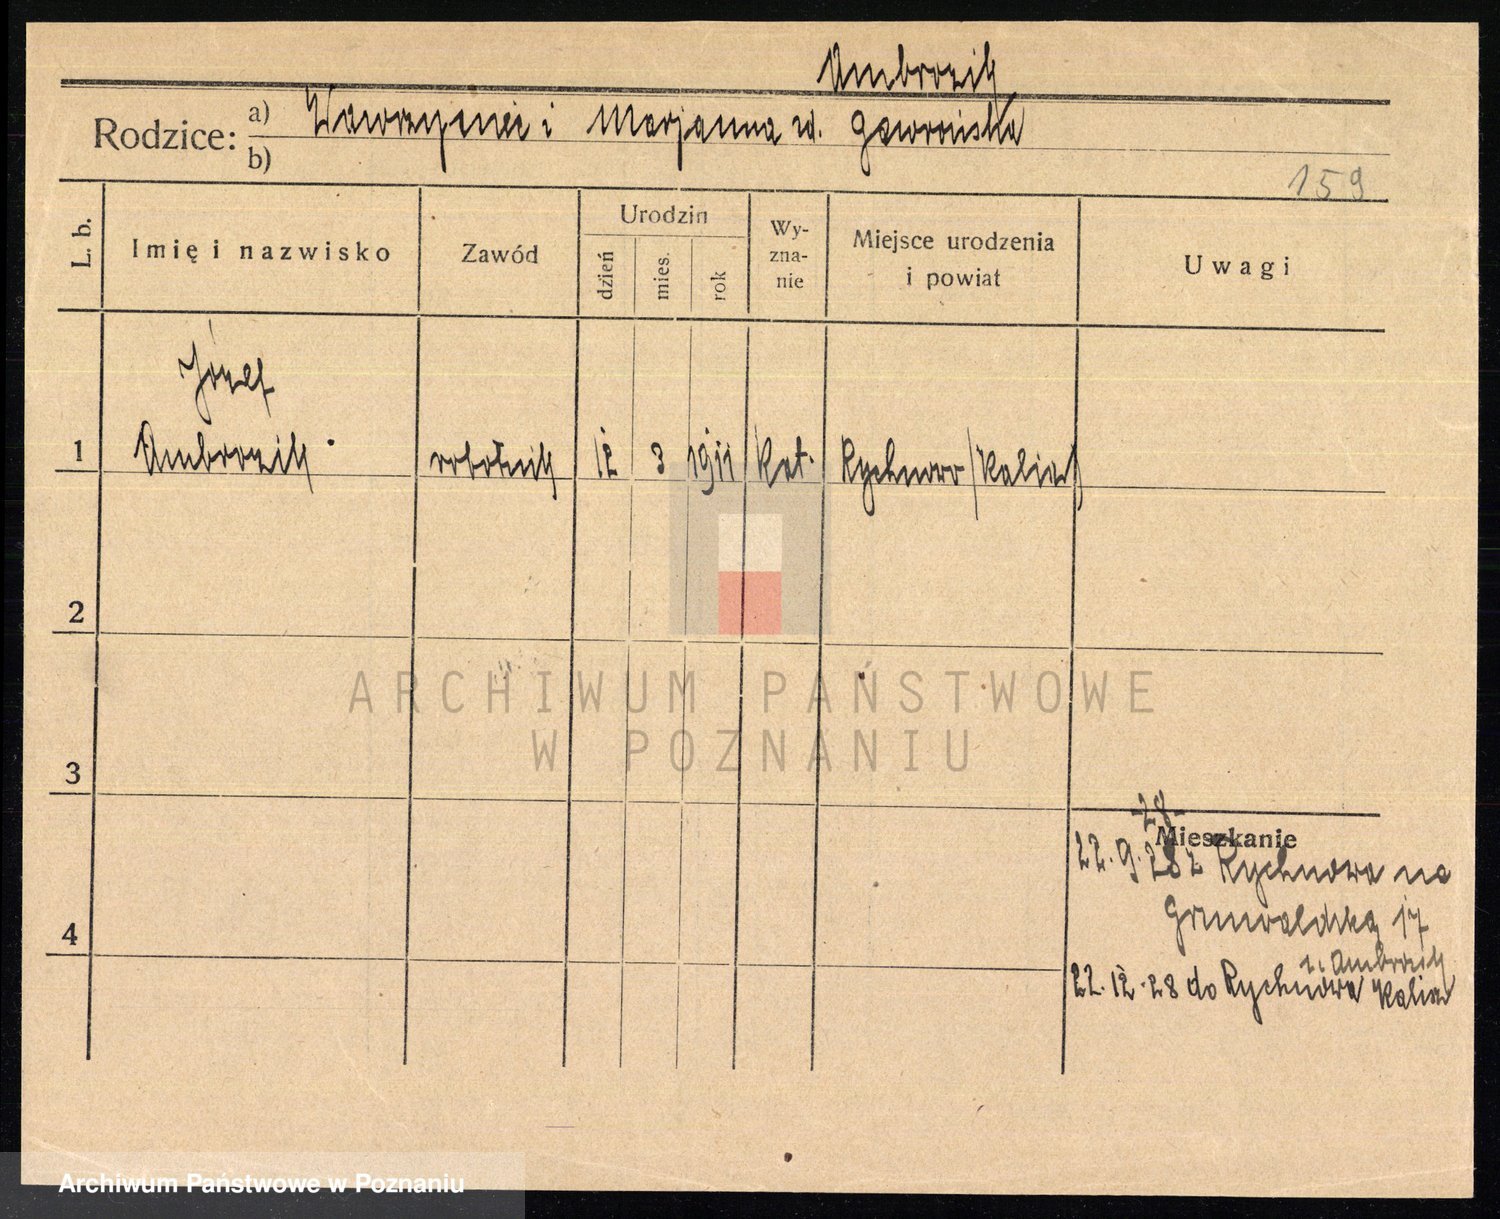 Ambrozik
Rodzice: a) Wawrzyniec i Marjanna zd. Gaworońska
b)
159
L. b.
Imię i nazwisko
Zawód
Urodzin
dzień
mies.
rok
Wy-
zna-
nie
Miejsce urodzenia
i powiat
Uwagi
Józef
1 Ambrozik robotnik 12 3 1911 kat. Rychnowo /Kalisz/
2
ARCHIWUM PAŃSTWOWE
W POZNANIU
3
-28-
Mieszkanie
22.9.28 z Rychnowa na
4 Grunwaldzką 17
Ambrozik
22.12.28 do Rychnowa Kalisz
Archiwum Państwowe w Poznaniu